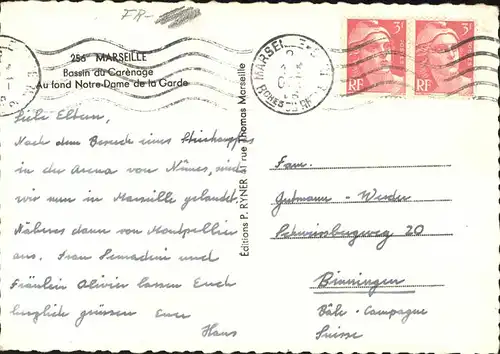 FR-
256 MARSEILLE
Bassin du Carènage
Au fond Notre-Dame de la Garde
Liebe Eltern,
Nach dem Besuche eines Stierkampfes
in der Arena von Nîmes, sind
wir nun in Marseille gelandet.
Näheres dann von Montpellier
aus. Frau Bernadini und
Fräulein Olivier lassen Euch
herzlich grüssen Euer
Hans
Éditions P. RYNER 41 rue Thomas Marseille
MARSEILLE
BCHES DU RH
3F
RF
3F
RF
Fam.
Gutmann - Weder
Schweissbergweg 20
Binningen
Bâle - Campagne
Suisse